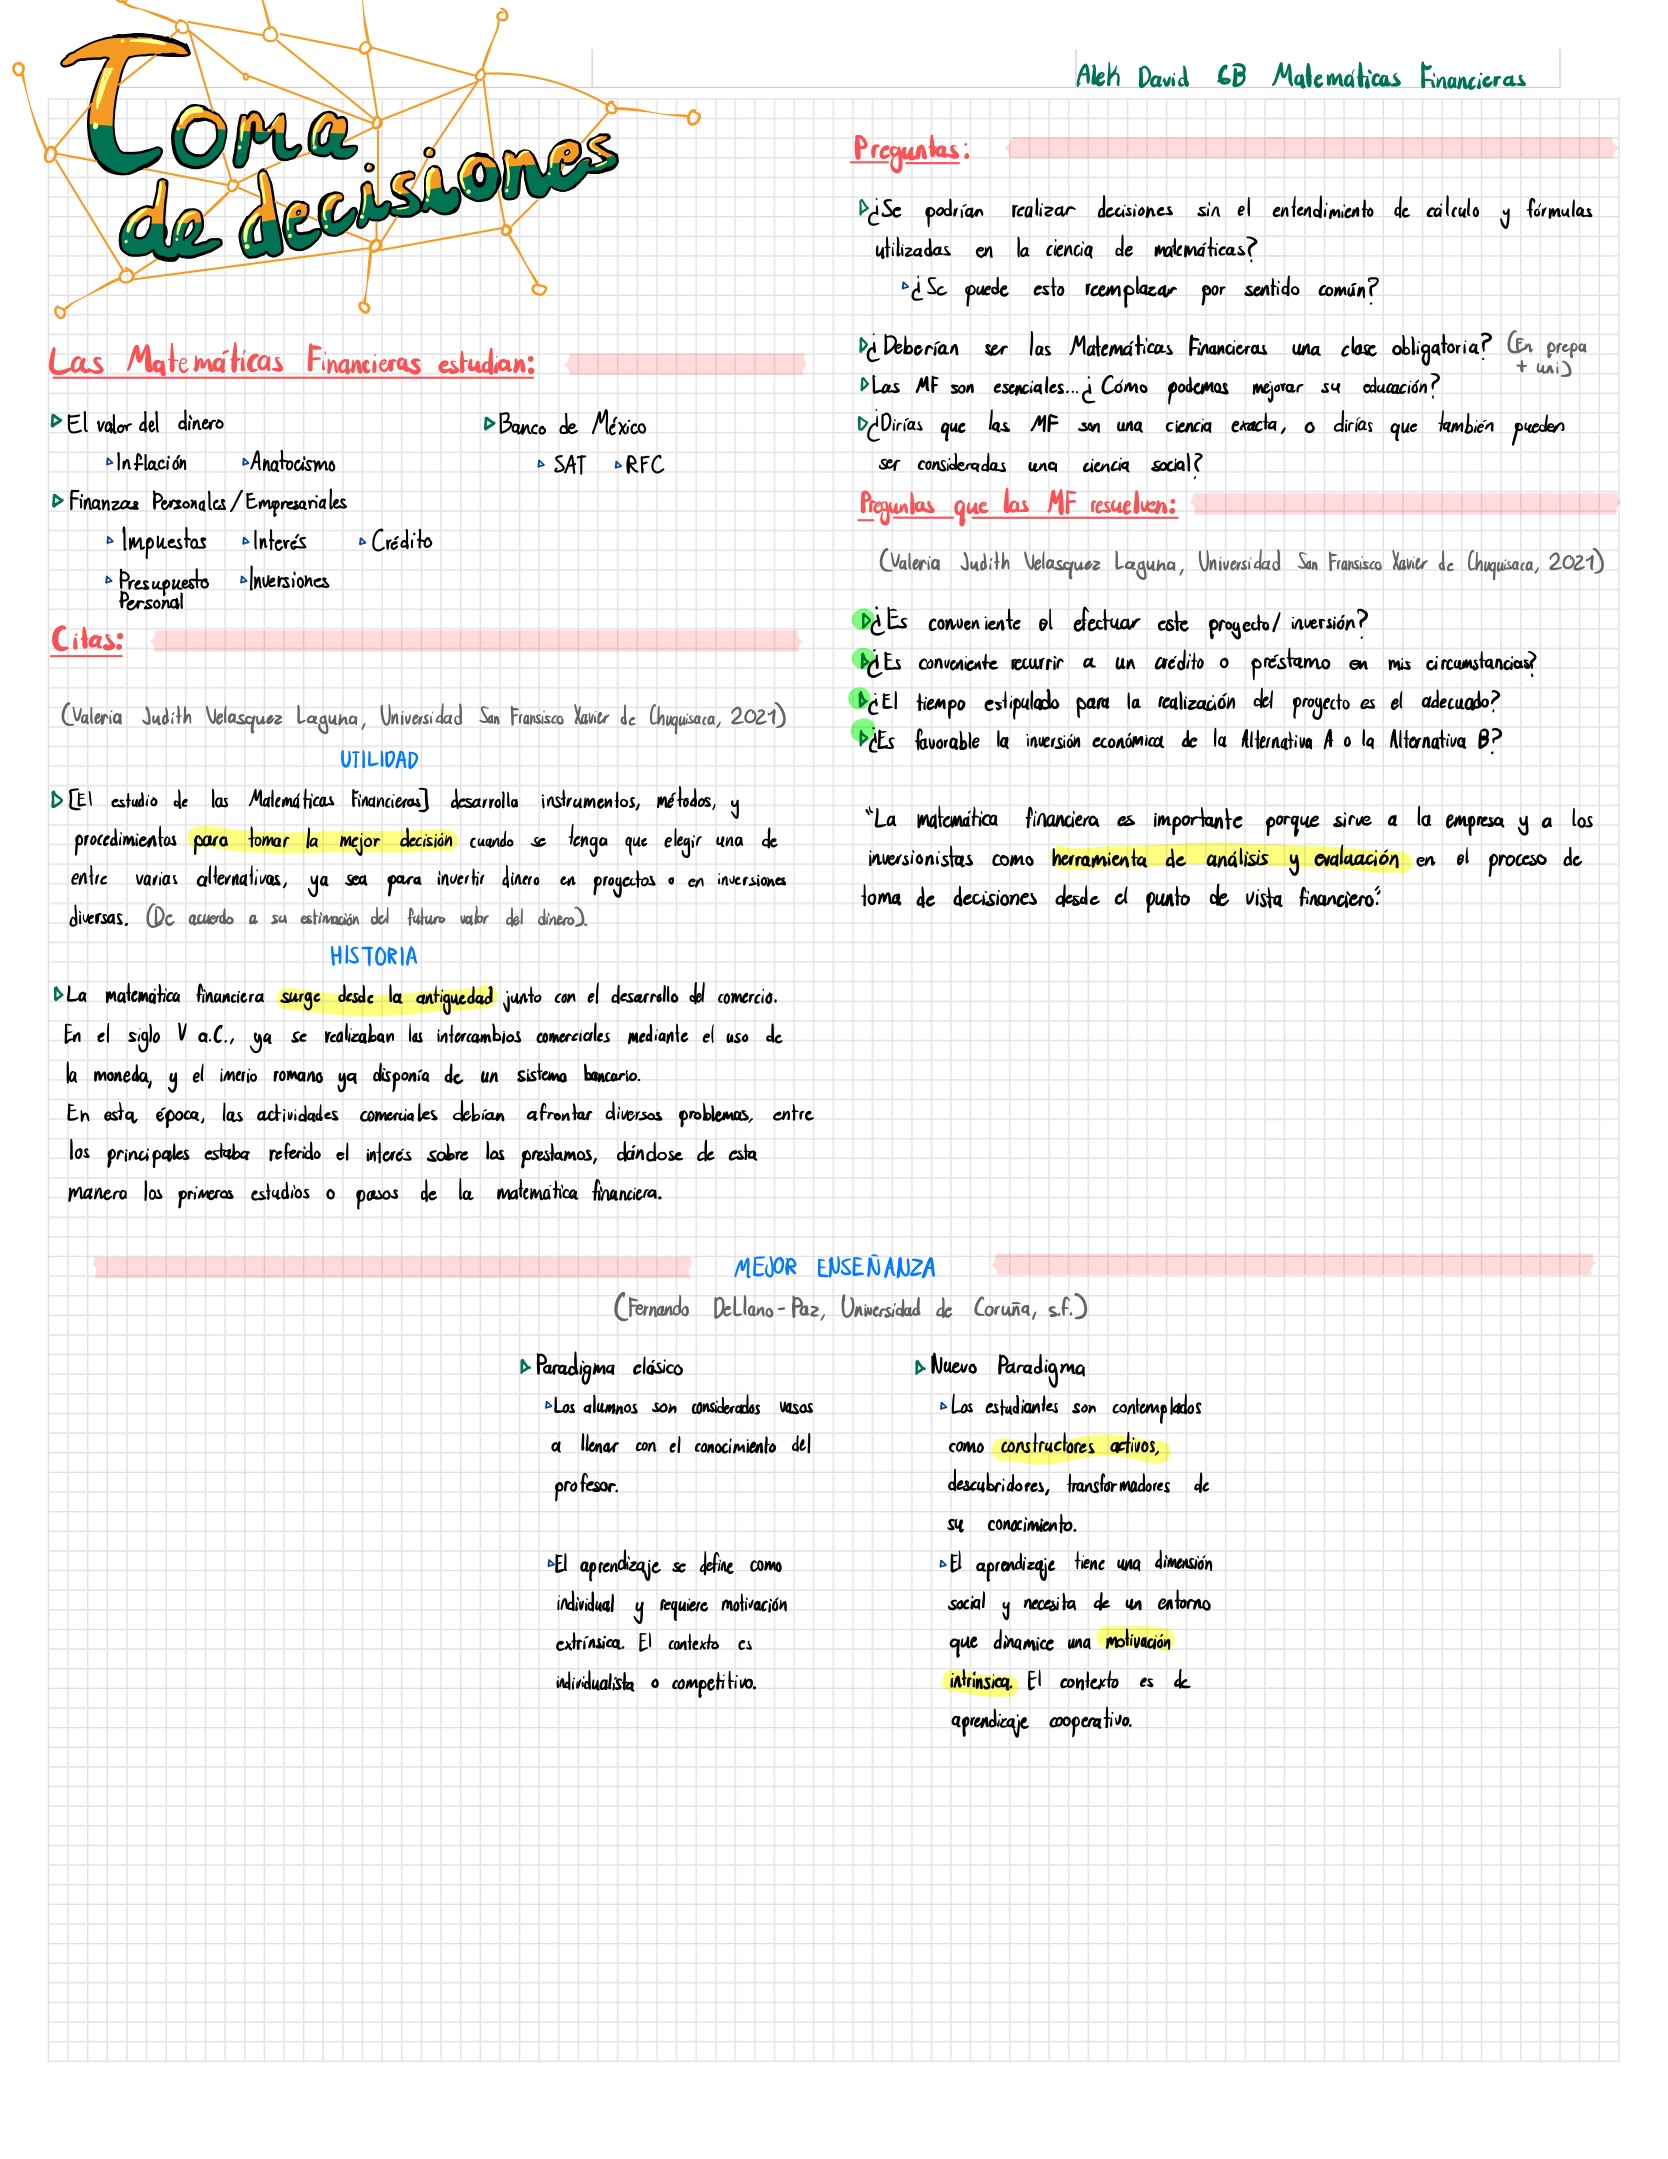 Toma
de decisiones
Alek David 6B Matemáticas Financieras
Las Matemáticas Financieras estudian:
El valor del dinero
Inflación Anatocismo
Finanzas Personales/Empresariales
Impuestos Interés Crédito
Presupuesto Inversiones
Personal
Banco de México
SAT RFC
Citas:
(Valeria Judith Velasquez Laguna, Universidad San Fransisco Xavier de Chuquisaca, 2021)
UTILIDAD
[El estudio de las Matemáticas Financieras] desarrolla instrumentos, métodos, y
procedimientos para tomar la mejor decisión cuando se tenga que elegir una de
entre varias alternativas, ya sea para invertir dinero en proyectos o en inversiones
diversas. (De acuerdo a su estimación del futuro valor del dinero).
HISTORIA
La matemática financiera surge desde la antiguedad junto con el desarrollo del comercio.
En el siglo V a.C., ya se realizaban los intercambios comerciales mediante el uso de
la moneda, y el imerio romano ya disponía de un sistema bancario.
En esta época, las actividades comerciales debían afrontar diversos problemas, entre
los principales estaba referido el interés sobre los prestamos, dándose de esta
manera los primeros estudios o pasos de la matemática financiera.
Preguntas:
¿Se podrían realizar decisiones sin el entendimiento de cálculo y fórmulas
utilizadas en la ciencia de matemáticas?
¿Se puede esto reemplazar por sentido común?
¿Deberían ser las Matemáticas Financieras una clase obligatoria? (En prepa
+ uni)
Las MF son esenciales...¿Cómo podemos mejorar su educación?
¿Dirías que las MF son una ciencia exacta, o dirías que también pueden
ser consideradas una ciencia social?
Preguntas que las MF resuelven:
(Valeria Judith Velasquez Laguna, Universidad San Fransisco Xavier de Chuquisaca, 2021)
¿Es conveniente el efectuar este proyecto/inversión?
¿Es conveniente recurrir a un crédito o préstamo en mis circumstancias?
¿El tiempo estipulado para la realización del proyecto es el adecuado?
¿Es favorable la inversión económica de la Alternativa A o la Alternativa B?
"La matemática financiera es importante porque sirve a la empresa y a los
inversionistas como herramienta de análisis y evaluación en el proceso de
toma de decisiones desde el punto de vista financiero."
MEJOR ENSEÑANZA
(Fernando DeLlano-Paz, Universidad de Coruña, s.f.)
Paradigma clásico
Los alumnos son considerados vasos
a llenar con el conocimiento del
profesor.
El aprendizaje se define como
individual y requiere motivación
extrínsica. El contexto es
individualista o competitivo.
Nuevo Paradigma
Los estudiantes son contemplados
como constructores activos,
descubridores, transformadores de
su conocimiento.
El aprendizaje tiene una dimensión
social y necesita de un entorno
que dinamice una motivación
intrínsica. El contexto es de
aprendizaje cooperativo.